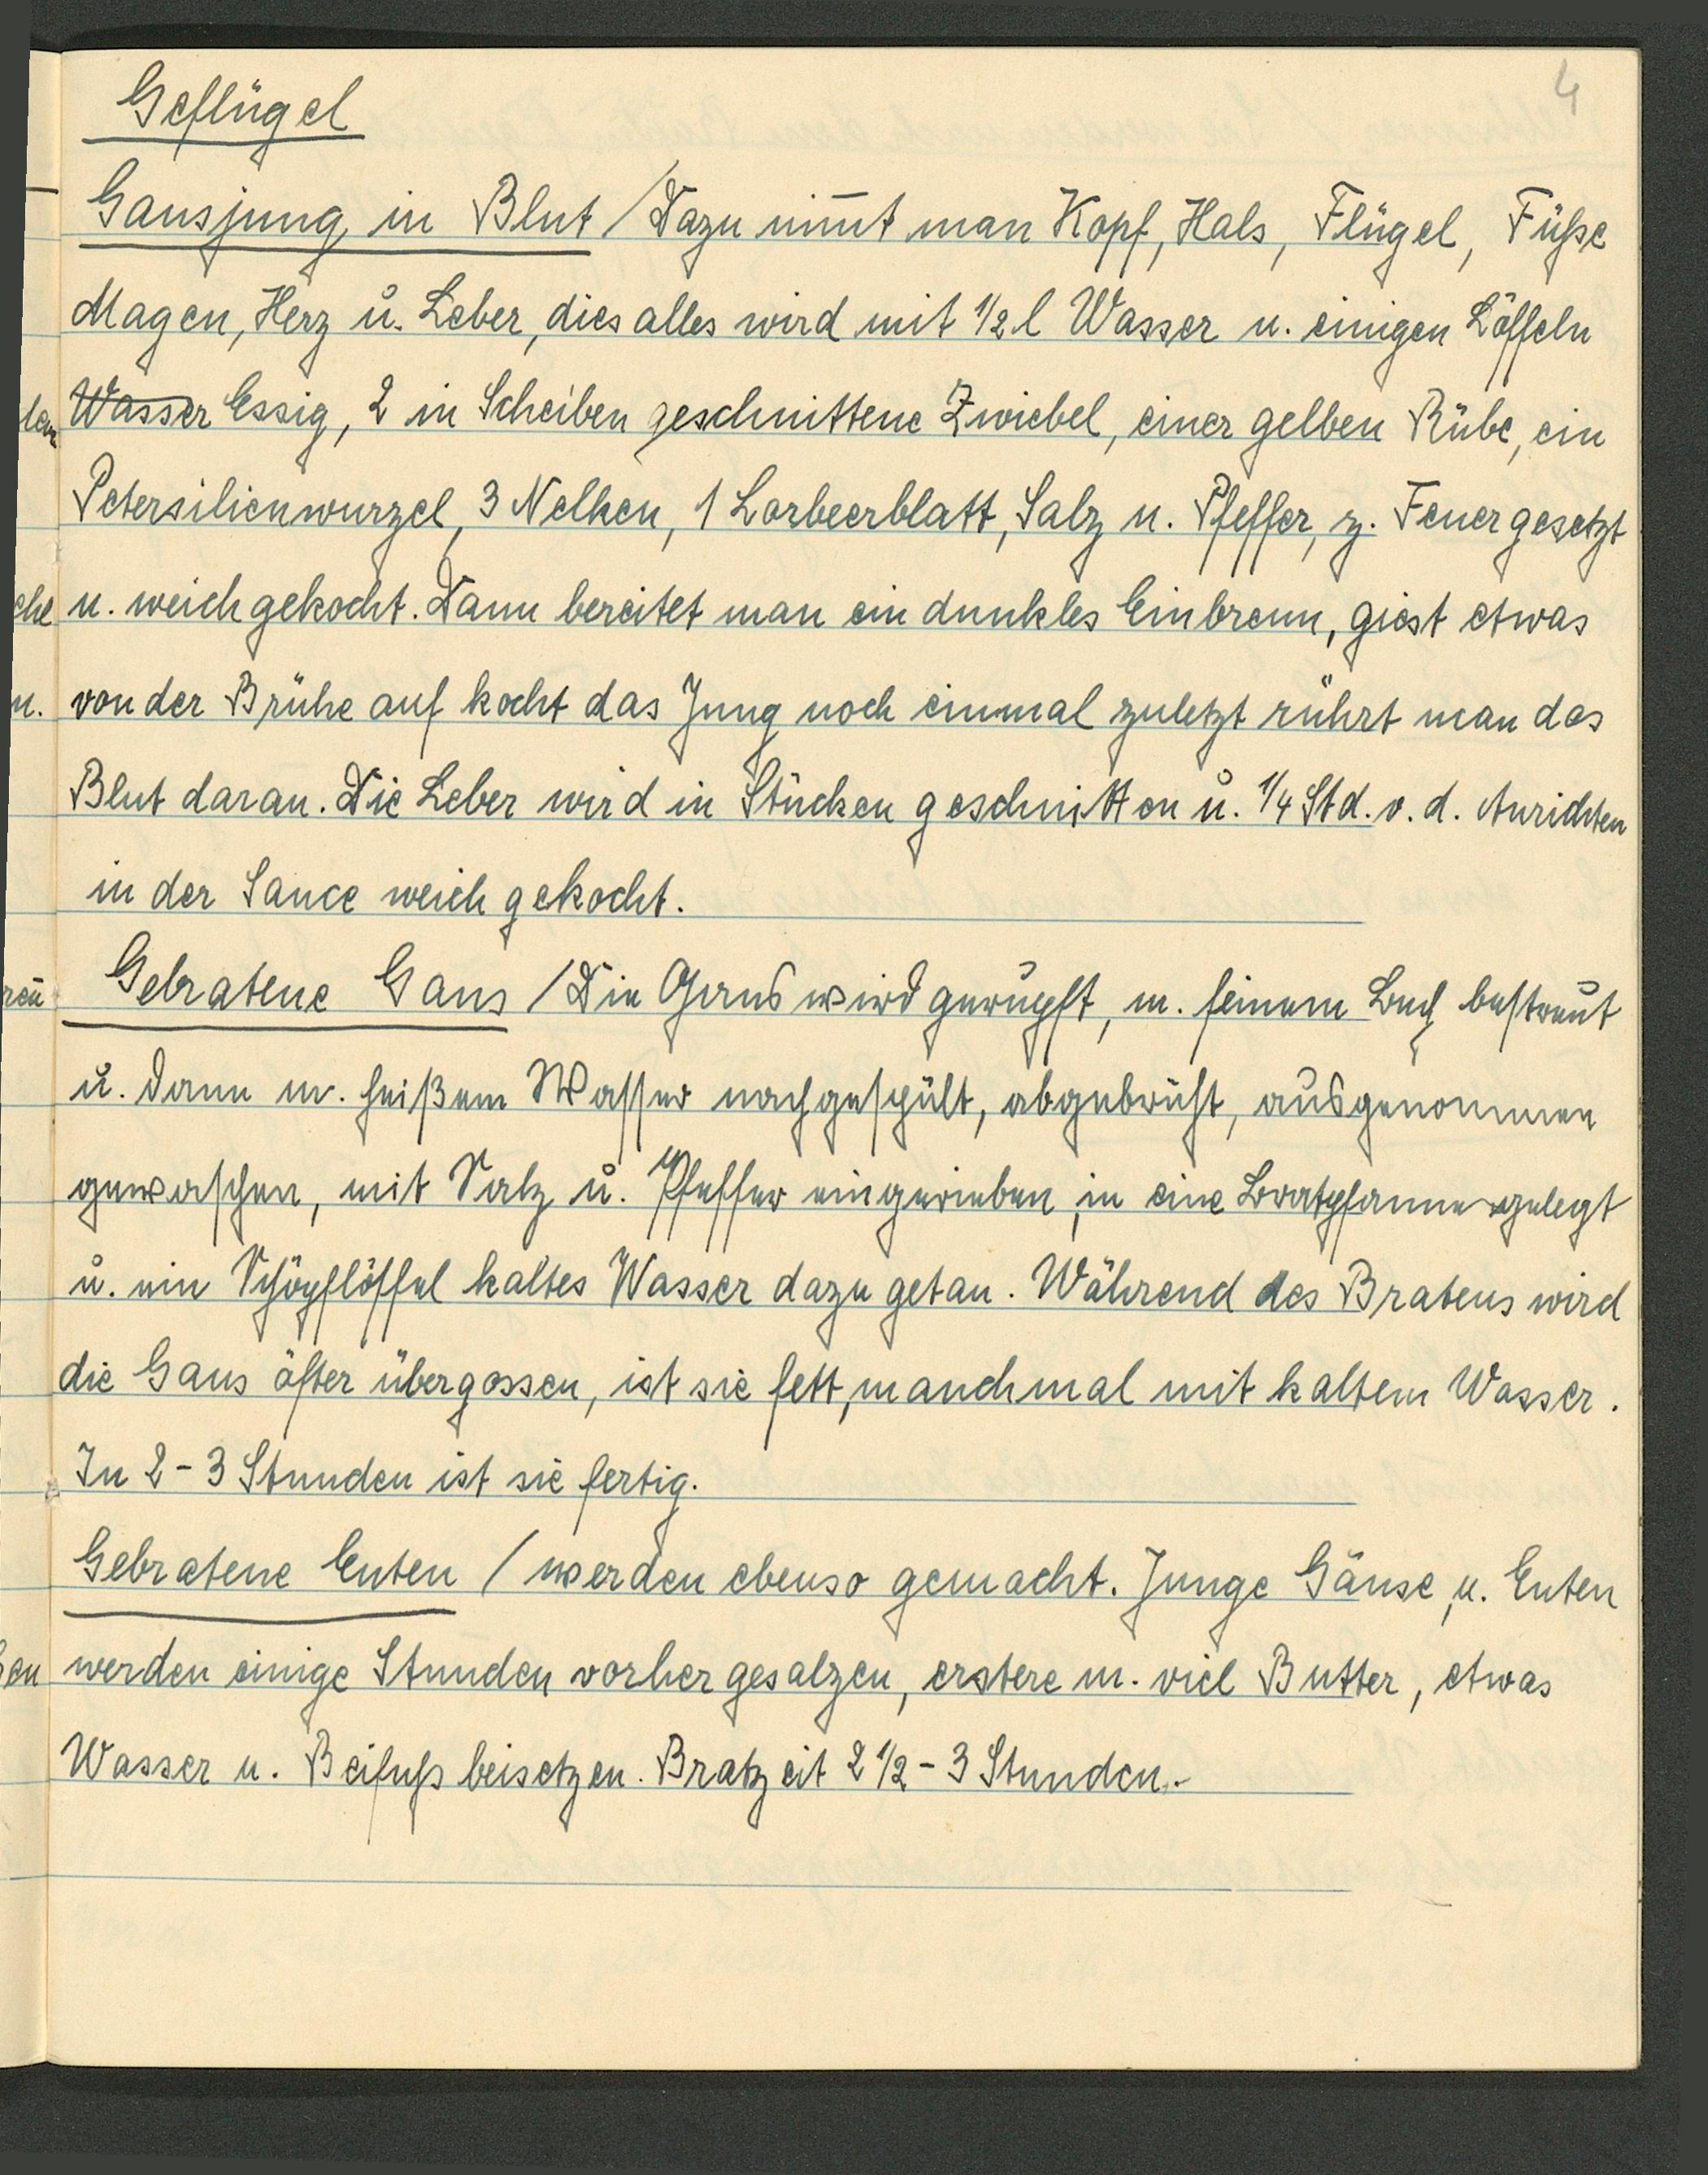 4
Geflügel
Gansjung in Blut / Dazu nim̄t man Kopf, Hals, Flügel, Füße
Magen, Herz u. Leber, dies alles wird mit 1/2 l Wasser u. einigen Löffeln
Wasser Essig, 2 in Scheiben geschnittene Zwiebel, einer gelben Rübe, ein
Petersilienwurzel, 3 Nelken, 1 Lorbeerblatt, Salz u. Pfeffer, z. Feuer gesetzt
u. weich gekocht. Dann bereitet man ein dunkles Einbrenn, giest etwas
von der Brühe auf kocht das Jung noch einmal zuletzt rührt man das
Blut daran. Die Leber wird in Stücken geschnitten u. 1/4 Std. v. d. Anrichten
in der Sauce weich gekocht.
Gebratene Gans / Die Gans wird gerupft, m. feinem bestreut
u. dann m. heißem Wasser nachgespült, abgebrüht, ausgenommen
gewaschen, mit Salz u. Pfeffer eingerieben, in eine Bratpfanne gelegt
u. ein Schöpflöffel kaltes Wasser dazu getan. Während des Bratens wird
die Gans öfter übergossen, ist sie fett, manchmal mit kaltem Wasser.
In 2 - 3 Stunden ist sie fertig.
Gebratene Enten / werden ebenso gemacht. Junge Gänse, u. Enten
werden einige Stunden vorher gesalzen, erstere m. viel Butter, etwas
Wasser u. Beifuß beisetzen. Bratzeit 2 1/2 - 3 Stunden.-